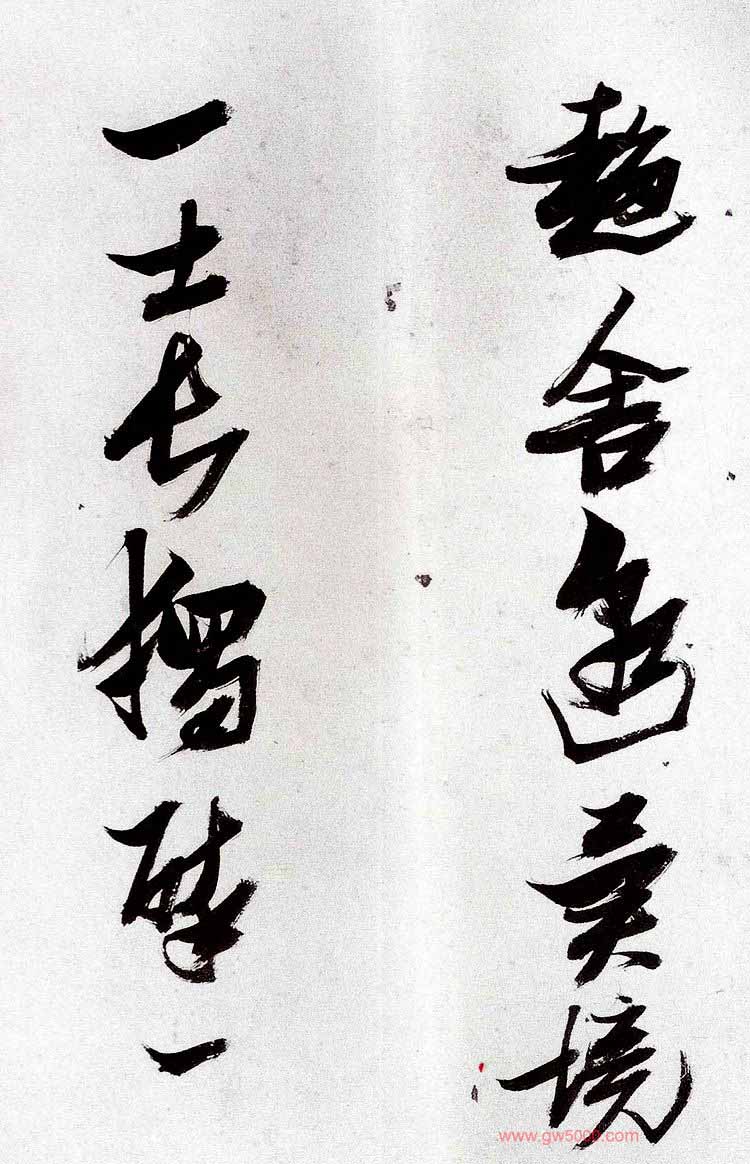 趣舍邈異境
一士長獨醉一
www.gw5000.com